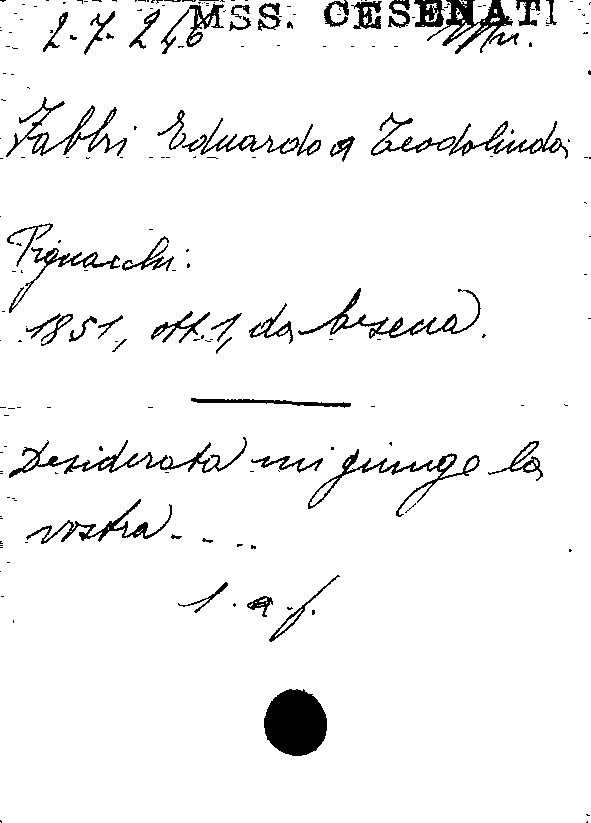 MSS. CESENATI
2.7.246
Fabbri Eduardo a Teodolinda
Pignacchi.
1851, ott. 1, da Cesena.
Desiderata mi giunge la
vostra....
l. a f.